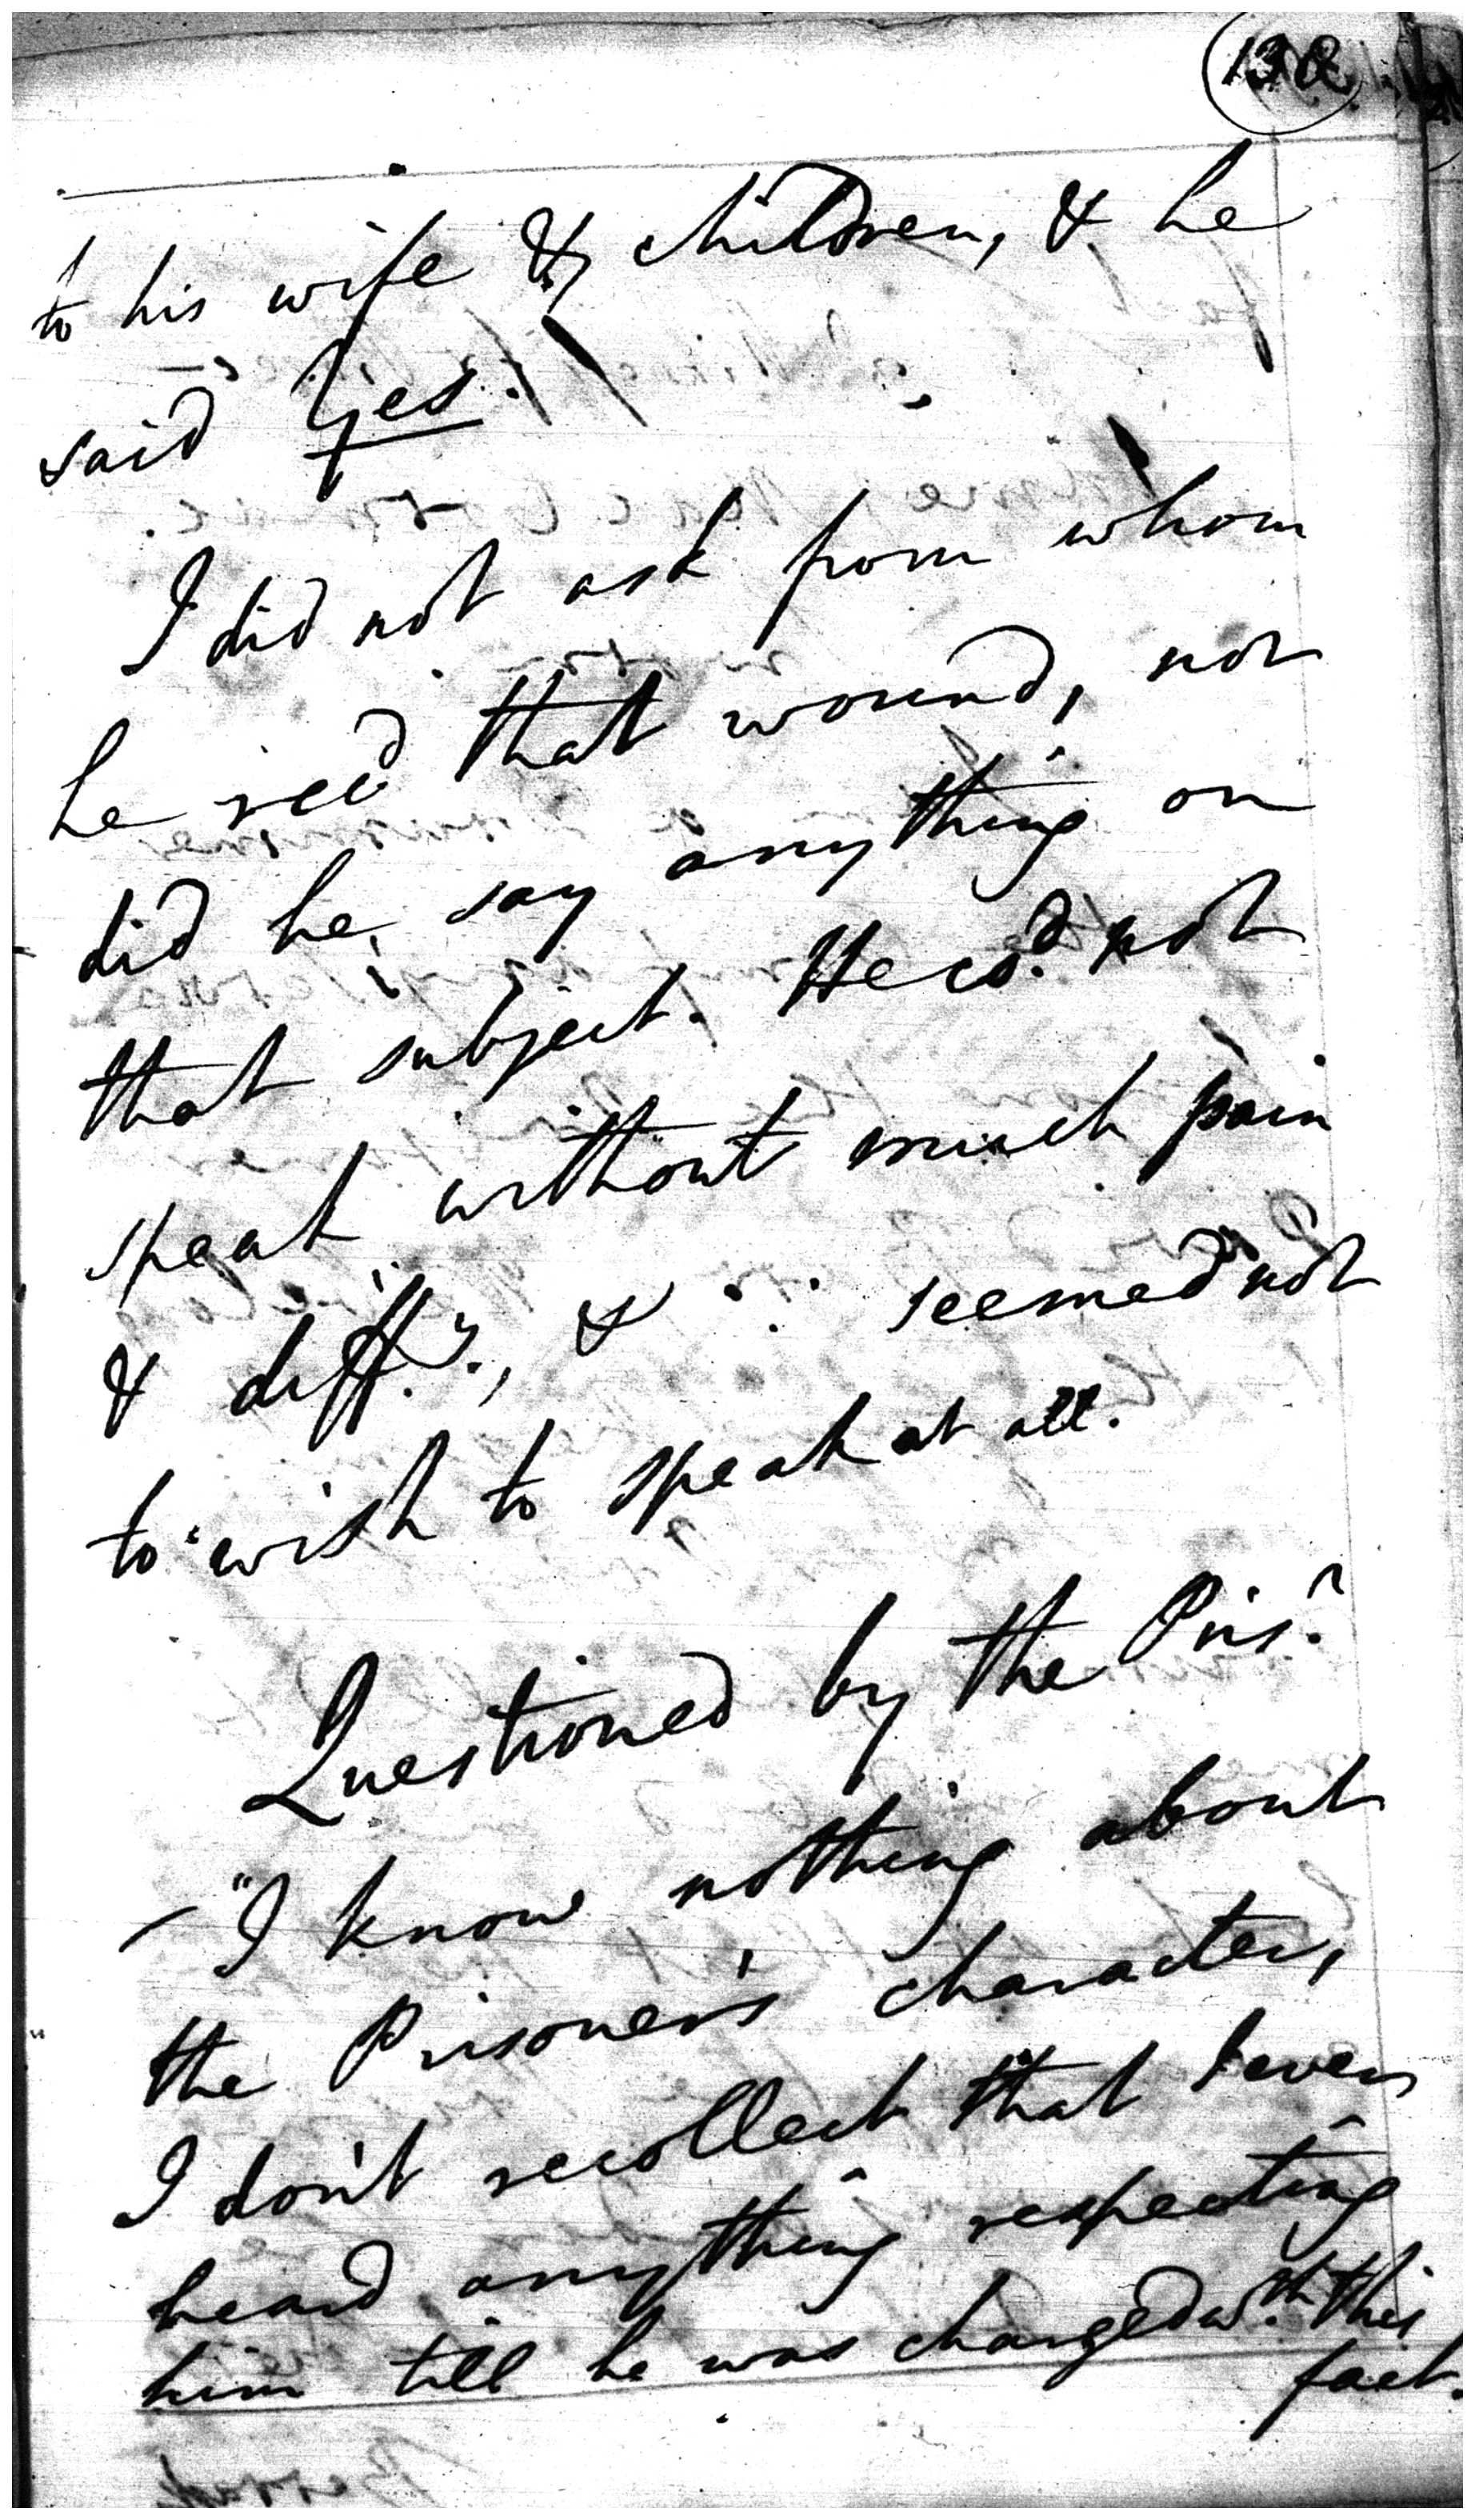 to his wife & children, & he
said Yes.
I did not ask from whom
he rec^d that wound, nor
did he say anything on
that subject. He co^d. not
speak without much pain
& diff^y., & ∴ seemed not
to wish to speak at all.
Questioned by the Pris^r.
— "I know nothing about
the Prisoner's character,
I don't recollect that I ever
heard anything respecting
him till he was charged w^th this
fact.